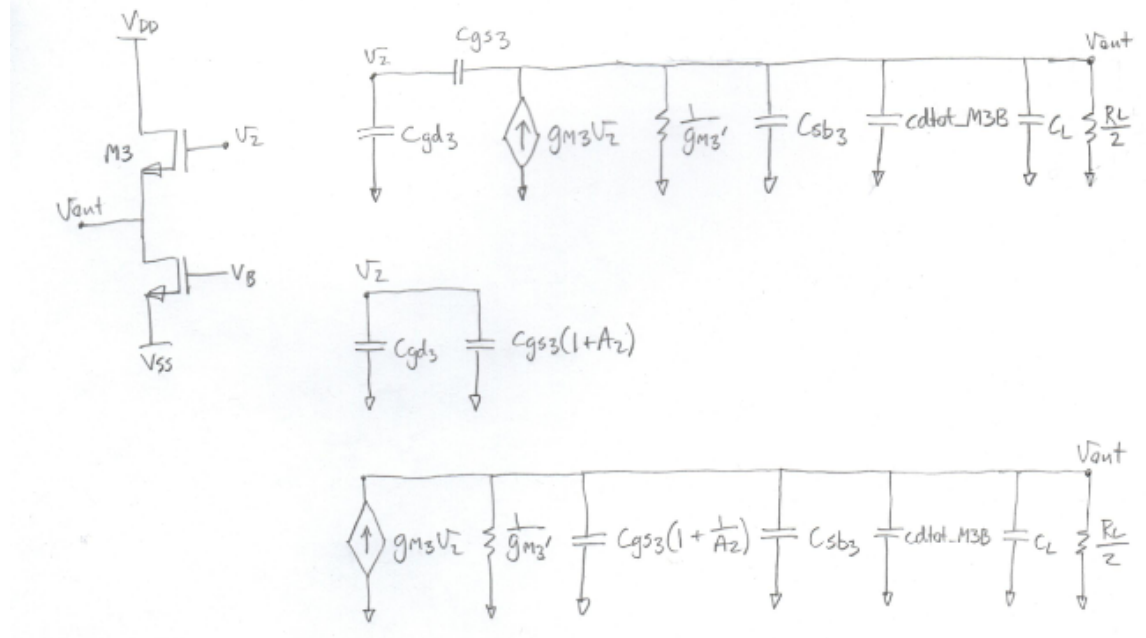 VDD
M3
V2
Vout
VB
VSS
V2
Cgs3
Cgd3
gm3V2
1/gm3'
Csb3
cdtot_M3B
CL
RL/2
Vout
V2
Cgd3
Cgs3(1+A2)
gm3V2
1/gm3'
Cgs3(1+1/A2)
Csb3
cdtot_M3B
CL
RL/2
Vout